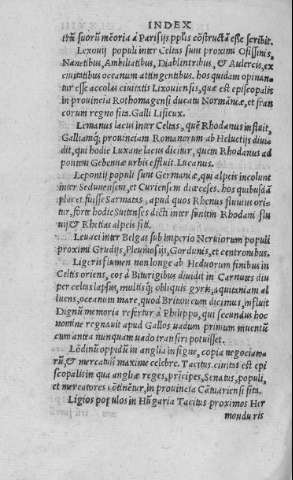 INDEX
trũ suorũ mẽoria à Parisijs pplis cõstructã esse scribit.
Lexouij populi inter Celtas sunt proximi Osissinis,
Nãnetibus, Ambiliatibus, Diablintribus, & Aulercis, ex
ciuitatibus oceanum attingentibus. hos quidam opinan
tur esse accolas ciuitatis Lixouiensis, quæ est episcopalis
in prouincia Rothomagensi ducatu Normãnæ, et fran
corum regno sita. Galli Lisieux.
Lemanus lacus inter Celtas, quẽ Rhodanus influit,
Galliamq; prouinciam Romanorum ab Heluetijs diui
dit, qui hodie Luxane lacus dicitur, quem Rhodanus ad
pontem Gebennæ urbis effluit. Lucanus.
Lepontij populi sunt Germaniæ, qui alpeis incolunt
inter Sedunensem, et Curiensem diœceses. hos quibusdã
placet fuisse Sarmatas, apud quos Rhenus fluuius ori
tur, forte hodie Suitenses dicti inter finitim Rhodani flu
uij & Rhetias alpeis siti.
Leuaci inter Belgas sub imperio Neruiorum populi
proximi Grudijs, Pleumosijs, Gordunis, et centronibus.
Ligeris flumen non longe ab Heduorum finibus in
Celtis oriens, eos à Biturigibus diuidit in Carnutes diu
per celsus lapsus, multisq; obliquus gyris, aquitaniam al
luens, oceanum mare, quod Britonum dicimus, influit
Dignũ memoria refertur à Philippo, qui secundus hoc
nomine regnauit apud Gallos uadum primum inuentũ
cum antea nunquam uado transiri potuisset.
Lõdinũ oppidũ in anglia insigne, copia negociato
rũ, & mercatus maxime celebre. Tacitus. ciuitas est epi
scopalis in qua angliæ reges, prĩcipes, Senatus, populi,
et mercatores cõtinẽtur, in prouincia Cãtuariensi sita.
Ligios populos in Hũgaria Tacitus proximos Her
monduris